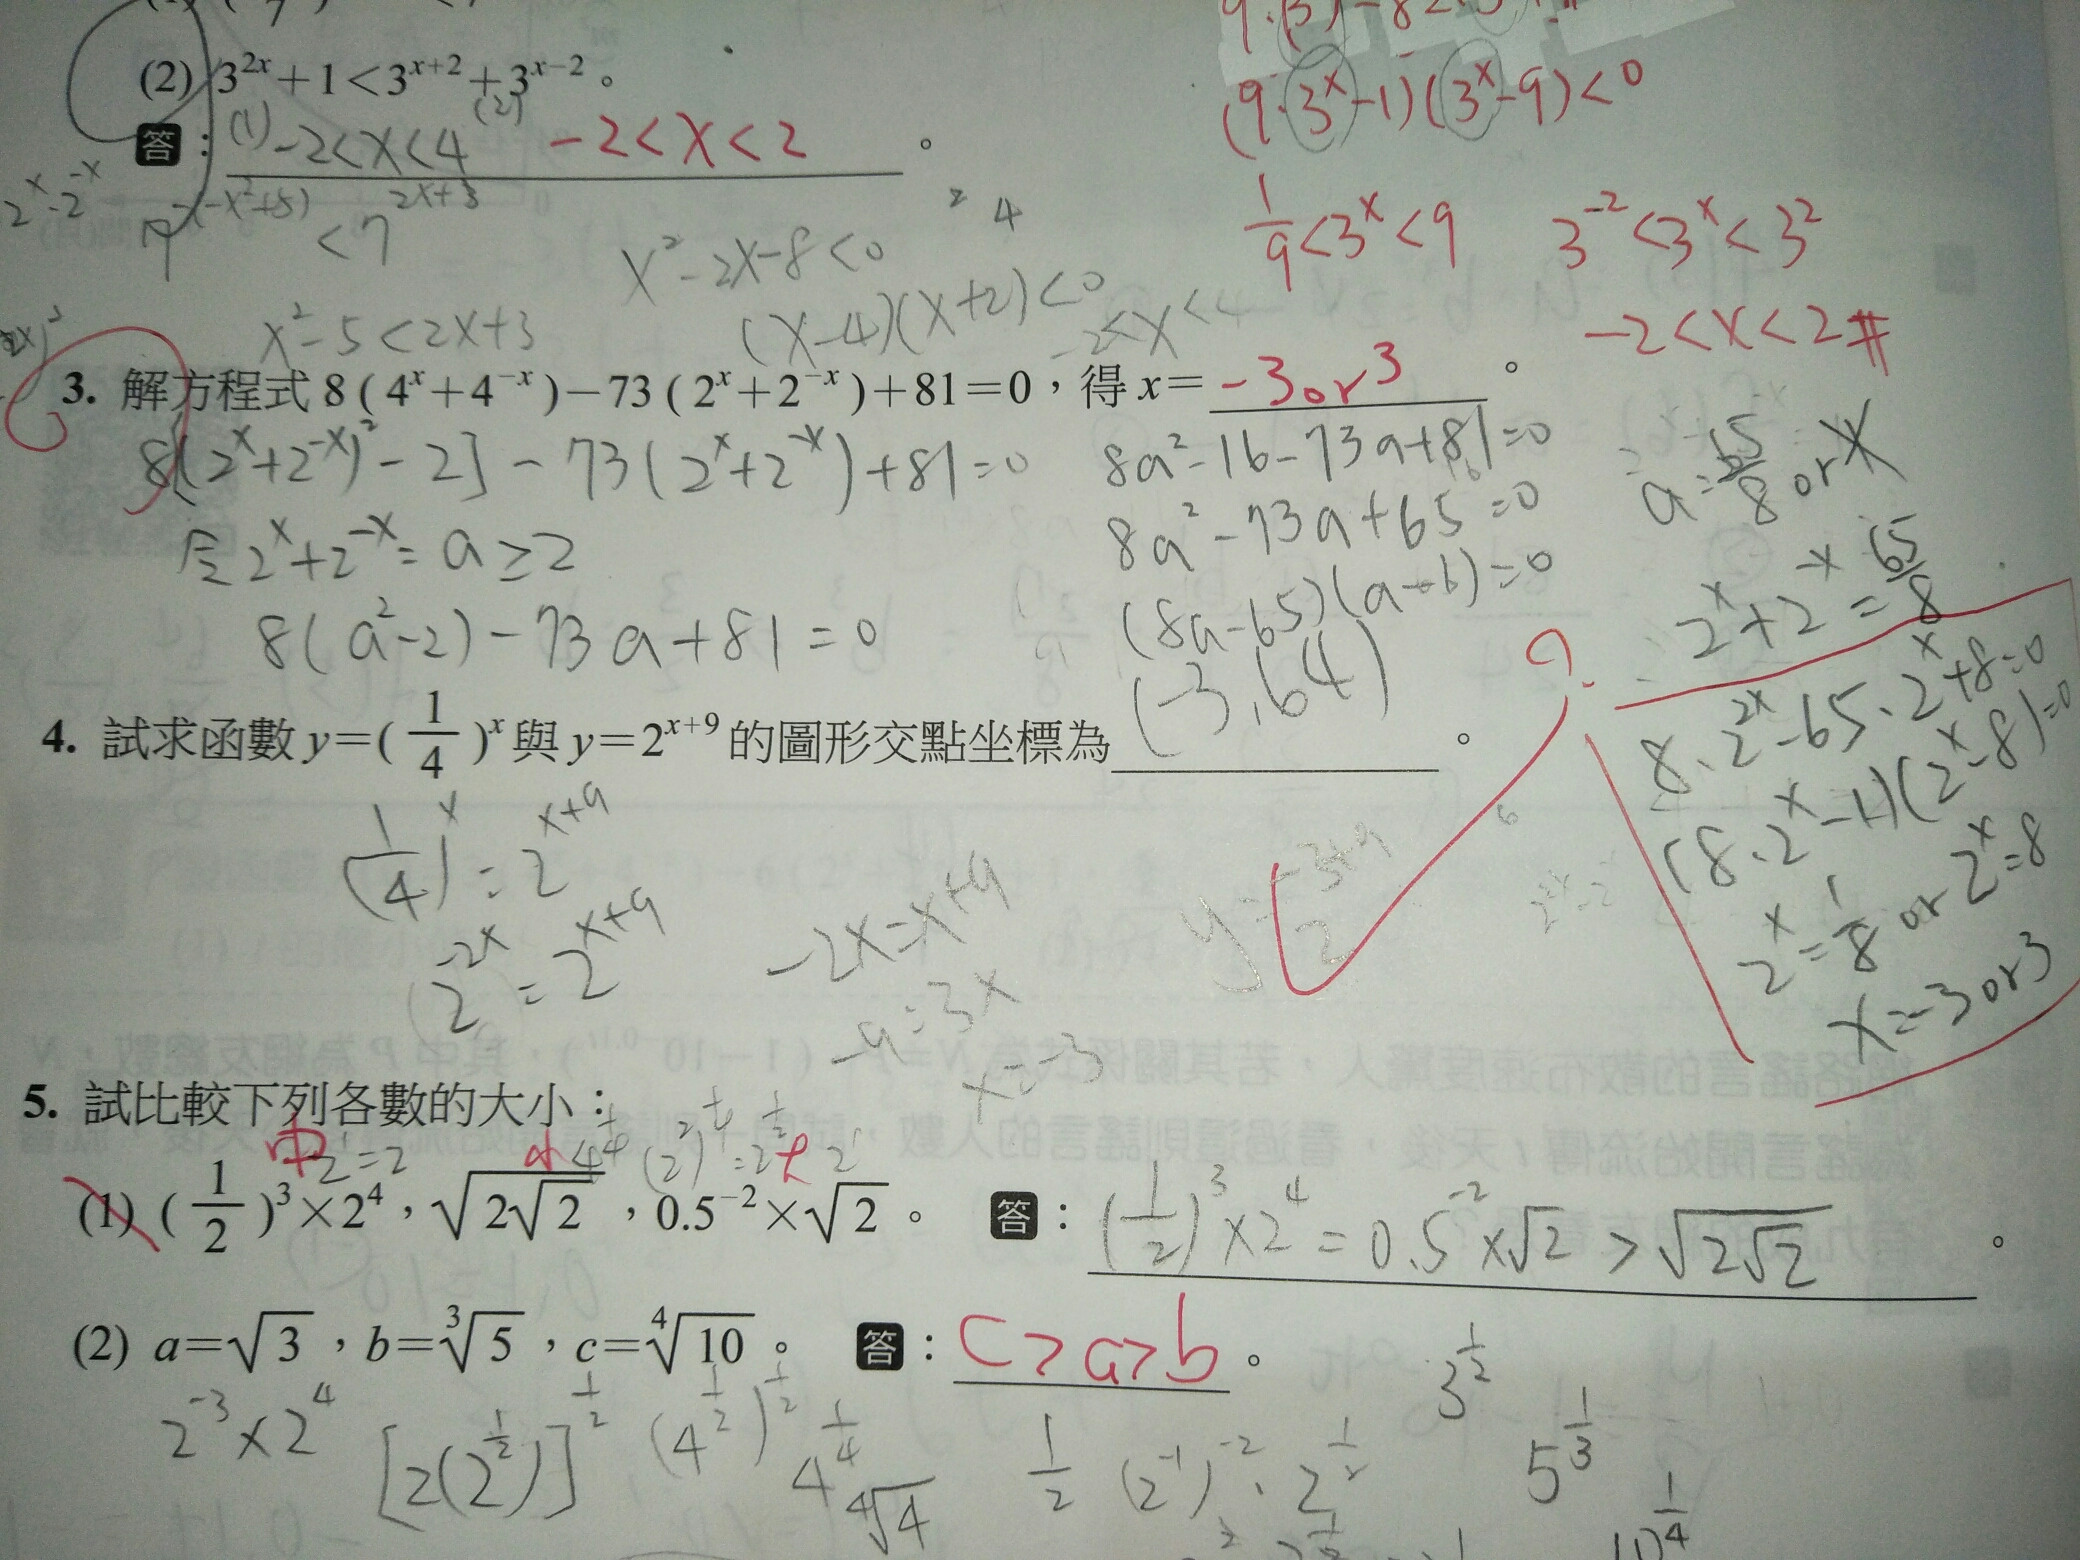 (2) 3^{2x}+1<3^{x+2}+3^{x-2}。
(9·3^x-1)(3^x-9)<0
答：(1) -2<x<4 (2) -2<x<2 。
2^x·2^{-x}
7^{-(-x²+5)} < 7^{2x+3}
2 4
1/9<3^x<9 3^{-2}<3^x<3^2
x²-2x-8<0
x²-5<2x+3
(x-4)(x+2)<0
-2<x<4
-2<x<2 #
3. 解方程式 8(4^x+4^{-x})-73(2^x+2^{-x})+81=0，得 x= -3 or 3 。
8[(2^x+2^{-x})²-2]-73(2^x+2^{-x})+81=0
令 2^x+2^{-x}=a≥2
8(a²-2)-73a+81=0
8a²-16-73a+81=0
8a²-73a+65=0
(8a-65)(a-1)=0
a=65/8 or 1
2^x+2^{-x}=65/8
8·2^{2x}-65·2^x+8=0
(8·2^x-1)(2^x-8)=0
2^x=1/8 or 2^x=8
x=-3 or 3
4. 試求函數 y=(1/4)^x 與 y=2^{x+9} 的圖形交點坐標為 (-3,64) 。
(1/4)^x=2^{x+9}
2^{-2x}=2^{x+9}
-2x=x+9
-9=3x
x=-3
y=2^{-3+9}
5. 試比較下列各數的大小：
中 2^1=2 小 4^{1/4} (2^2)^{1/4}=2^{1/2} 大
(1) (1/2)^3×2^4，√(2√2)，0.5^{-2}×√2。 答：(1/2)^3×2^4=0.5^{-2}×√2>√(2√2) 。
(2) a=√3，b=∛5，c=∜10。 答：c>a>b 。
2^{-3}×2^4
[2(2^{1/2})]^{1/2}
(4^{1/2})^{1/2}
4^{1/4}
∜4
1/2
(2^{-1})^{-2}·2^{1/2}
3^{1/2}
5^{1/3}
10^{1/4}